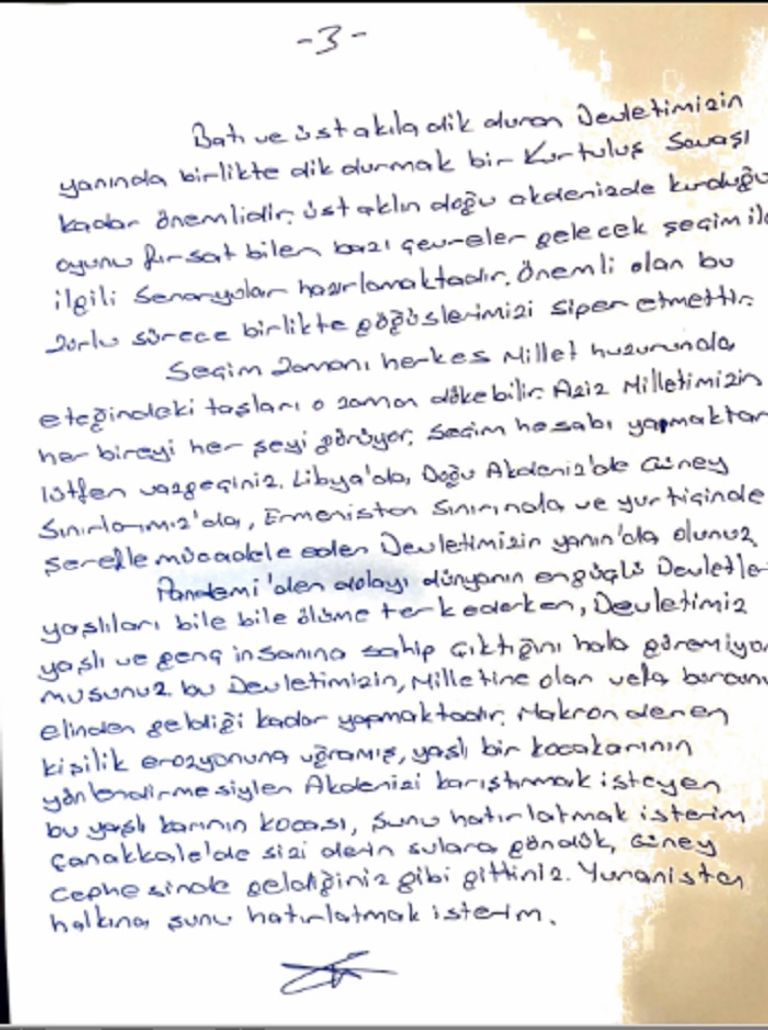 -3-
Batı ve üst akıla dik duran Devletimizin
yanında birlikte dik durmak bir Kurtuluş Savaşı
kadar önemlidir. üst aklın doğu akdenizde kurduğu
oyunu fırsat bilen bazı çevreler gelecek seçim ile
ilgili Senaryolar hazırlamaktadır. Önemli olan bu
zorlu sürece birlikte göğüslerimizi siper etmettir.
Seçim zamanı herkes Millet huzurunda
eteğindeki taşları o zaman dökebilir. Aziz Milletimizin
her bireyi her şeyi görüyor. Seçim hesabı yapmaktan
lütfen vazgeçiniz. Libya'da, Doğu Akdeniz'de Güney
Sınırlarımız'da, Ermenistan Sınırında ve yurtiçinde
şerefle mücadele eden Devletimizin yanın'da olunuz.
Pandemi'den dolayı dünyanın engüçlü Devletle
yaşlıları bile bile ölüme terkederken, Devletimiz
yaşlı ve genç insanına sahip çıktığını hala göremiyor
musunuz bu Devletimizin, Milletine olan vefa borcunu
elinden geldiği kadar yapmaktadır. Makron denen
kişilik erozyonuna uğramış, yaşlı bir kocakarının
yönlendirmesiylen Akdenizi karıştırmak isteyen
bu yaşlı karının kocası, şunu hatırlatmak isterim
Çanakkale'de sizi derin sulara gömdük, Güney
Cephesinde geldiğiniz gibi gittiniz. Yunanistan
halkına şunu hatırlatmak isterim.